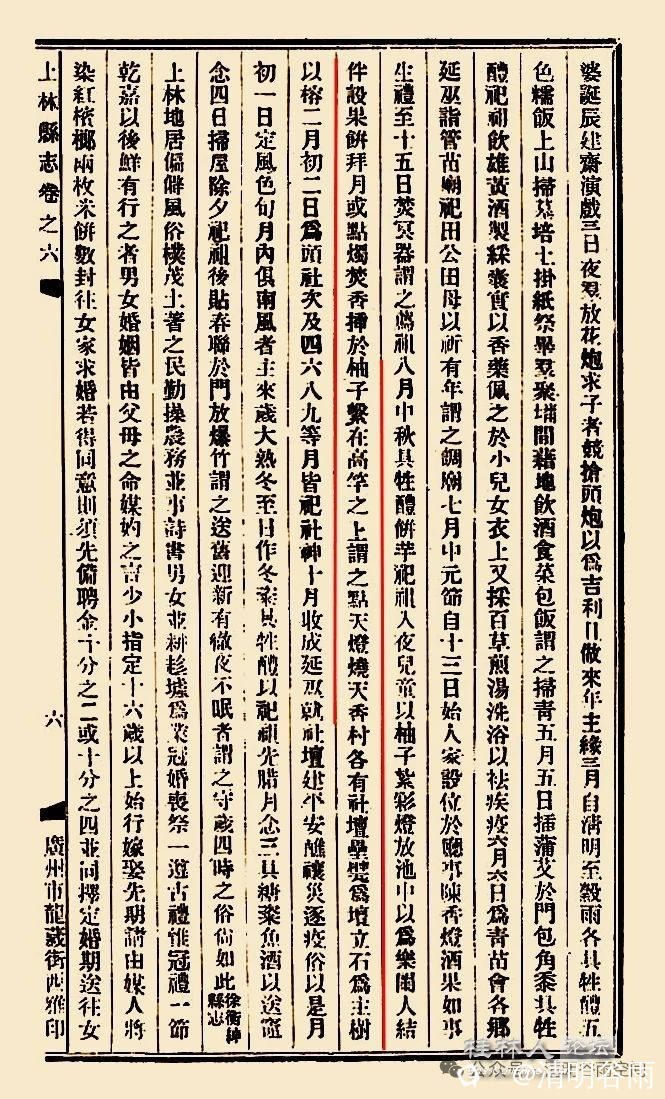 婆誕辰建齋演戲三日夜放花炮求子者競搶頭炮以爲吉利且做來年主緣三月自淸明至穀雨各具牲醴五
色糯飯上山掃墓培土掛紙祭畢羣聚埔間藉地飲酒食菜包飯謂之掃靑五月五日插蒲艾於門包角黍具牲
醴祀祖飲雄黃酒製綵囊實以香藥佩之於小兒女衣上又採百草煎湯洗浴以祛疾疫六月六日爲靑苗會各鄕
延巫詣管苗廟祀田公田母以祈有年謂之餉廟七月中元節自十三日始人家設位於廳事陳香燈酒果如事
生禮至十五日焚冥器謂之薦祖八月中秋具牲醴餅芋祀祖入夜兒童以柚子紮彩燈放池中以爲樂閨人結
伴設果餅拜月或點燭焚香揷於柚子繫在高竿之上謂之點天燈燒天香村各有社壇壘甓爲壇立石爲主樹
以榕二月初二日爲頭社次及四六八九等月皆祀社神十月收成延巫就社壇建平安醮禳災逐疫俗以是月
初一日定風色旬月內俱南風者主來歲大熟冬至日作冬粢具牲醴以祀祖先臘月念三具糖粢魚酒以送竈
念四日掃屋除夕祀祖後貼春聯於門放爆竹謂之送舊迎新有徹夜不眠者謂之守歲四時之俗尙如此徐衡紳縣志
上林地居偏僻風俗樸茂土著之民勤操農務並事詩書男女並耕趁墟爲業冠婚喪祭一遵古禮惟冠禮一節
乾嘉以後鮮有行之者男女婚姻皆由父母之命媒妁之言少小指定十六歲以上始行嫁娶先期請由媒人將
染紅檳榔兩枚米餅數封往女家求婚若得同意則須先備聘金十分之二或十分之四並同擇定婚期送往女
上林縣志卷之六
六
廣州市龍藏街西雅印
桂林人論壇
公众号
@清明谷雨